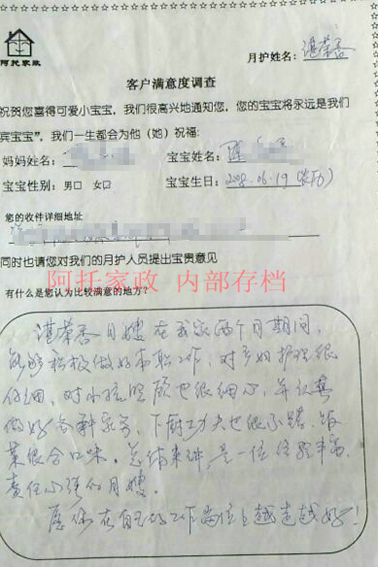 阿托家政
月护姓名：湛荣香
客户满意度调查
祝贺您喜得可爱小宝宝，我们很高兴地通知您，您的宝宝将永远是我们
宾宝宝”，我们一生都会为他（她）祝福：
妈妈姓名：
宝宝姓名：陈
宝宝性别：男□ 女□
宝宝生日：2012.06.19（农历）
您的收件详细地址
同时也请您对我们的月护人员提出宝贵意见
阿托家政 内部存档
有什么是您认为比较满意的地方？
湛荣香月嫂在我家两个月期间，
能够积极做好本职工作，对产妇护理很
仔细，对小孩照顾也很细心，并认真
做好各种家务，下厨功夫也很不错，饭
菜很合口味。总结来讲，是一位经验丰富，
责任心强的月嫂。
愿你在自己的工作岗位上越走越好！